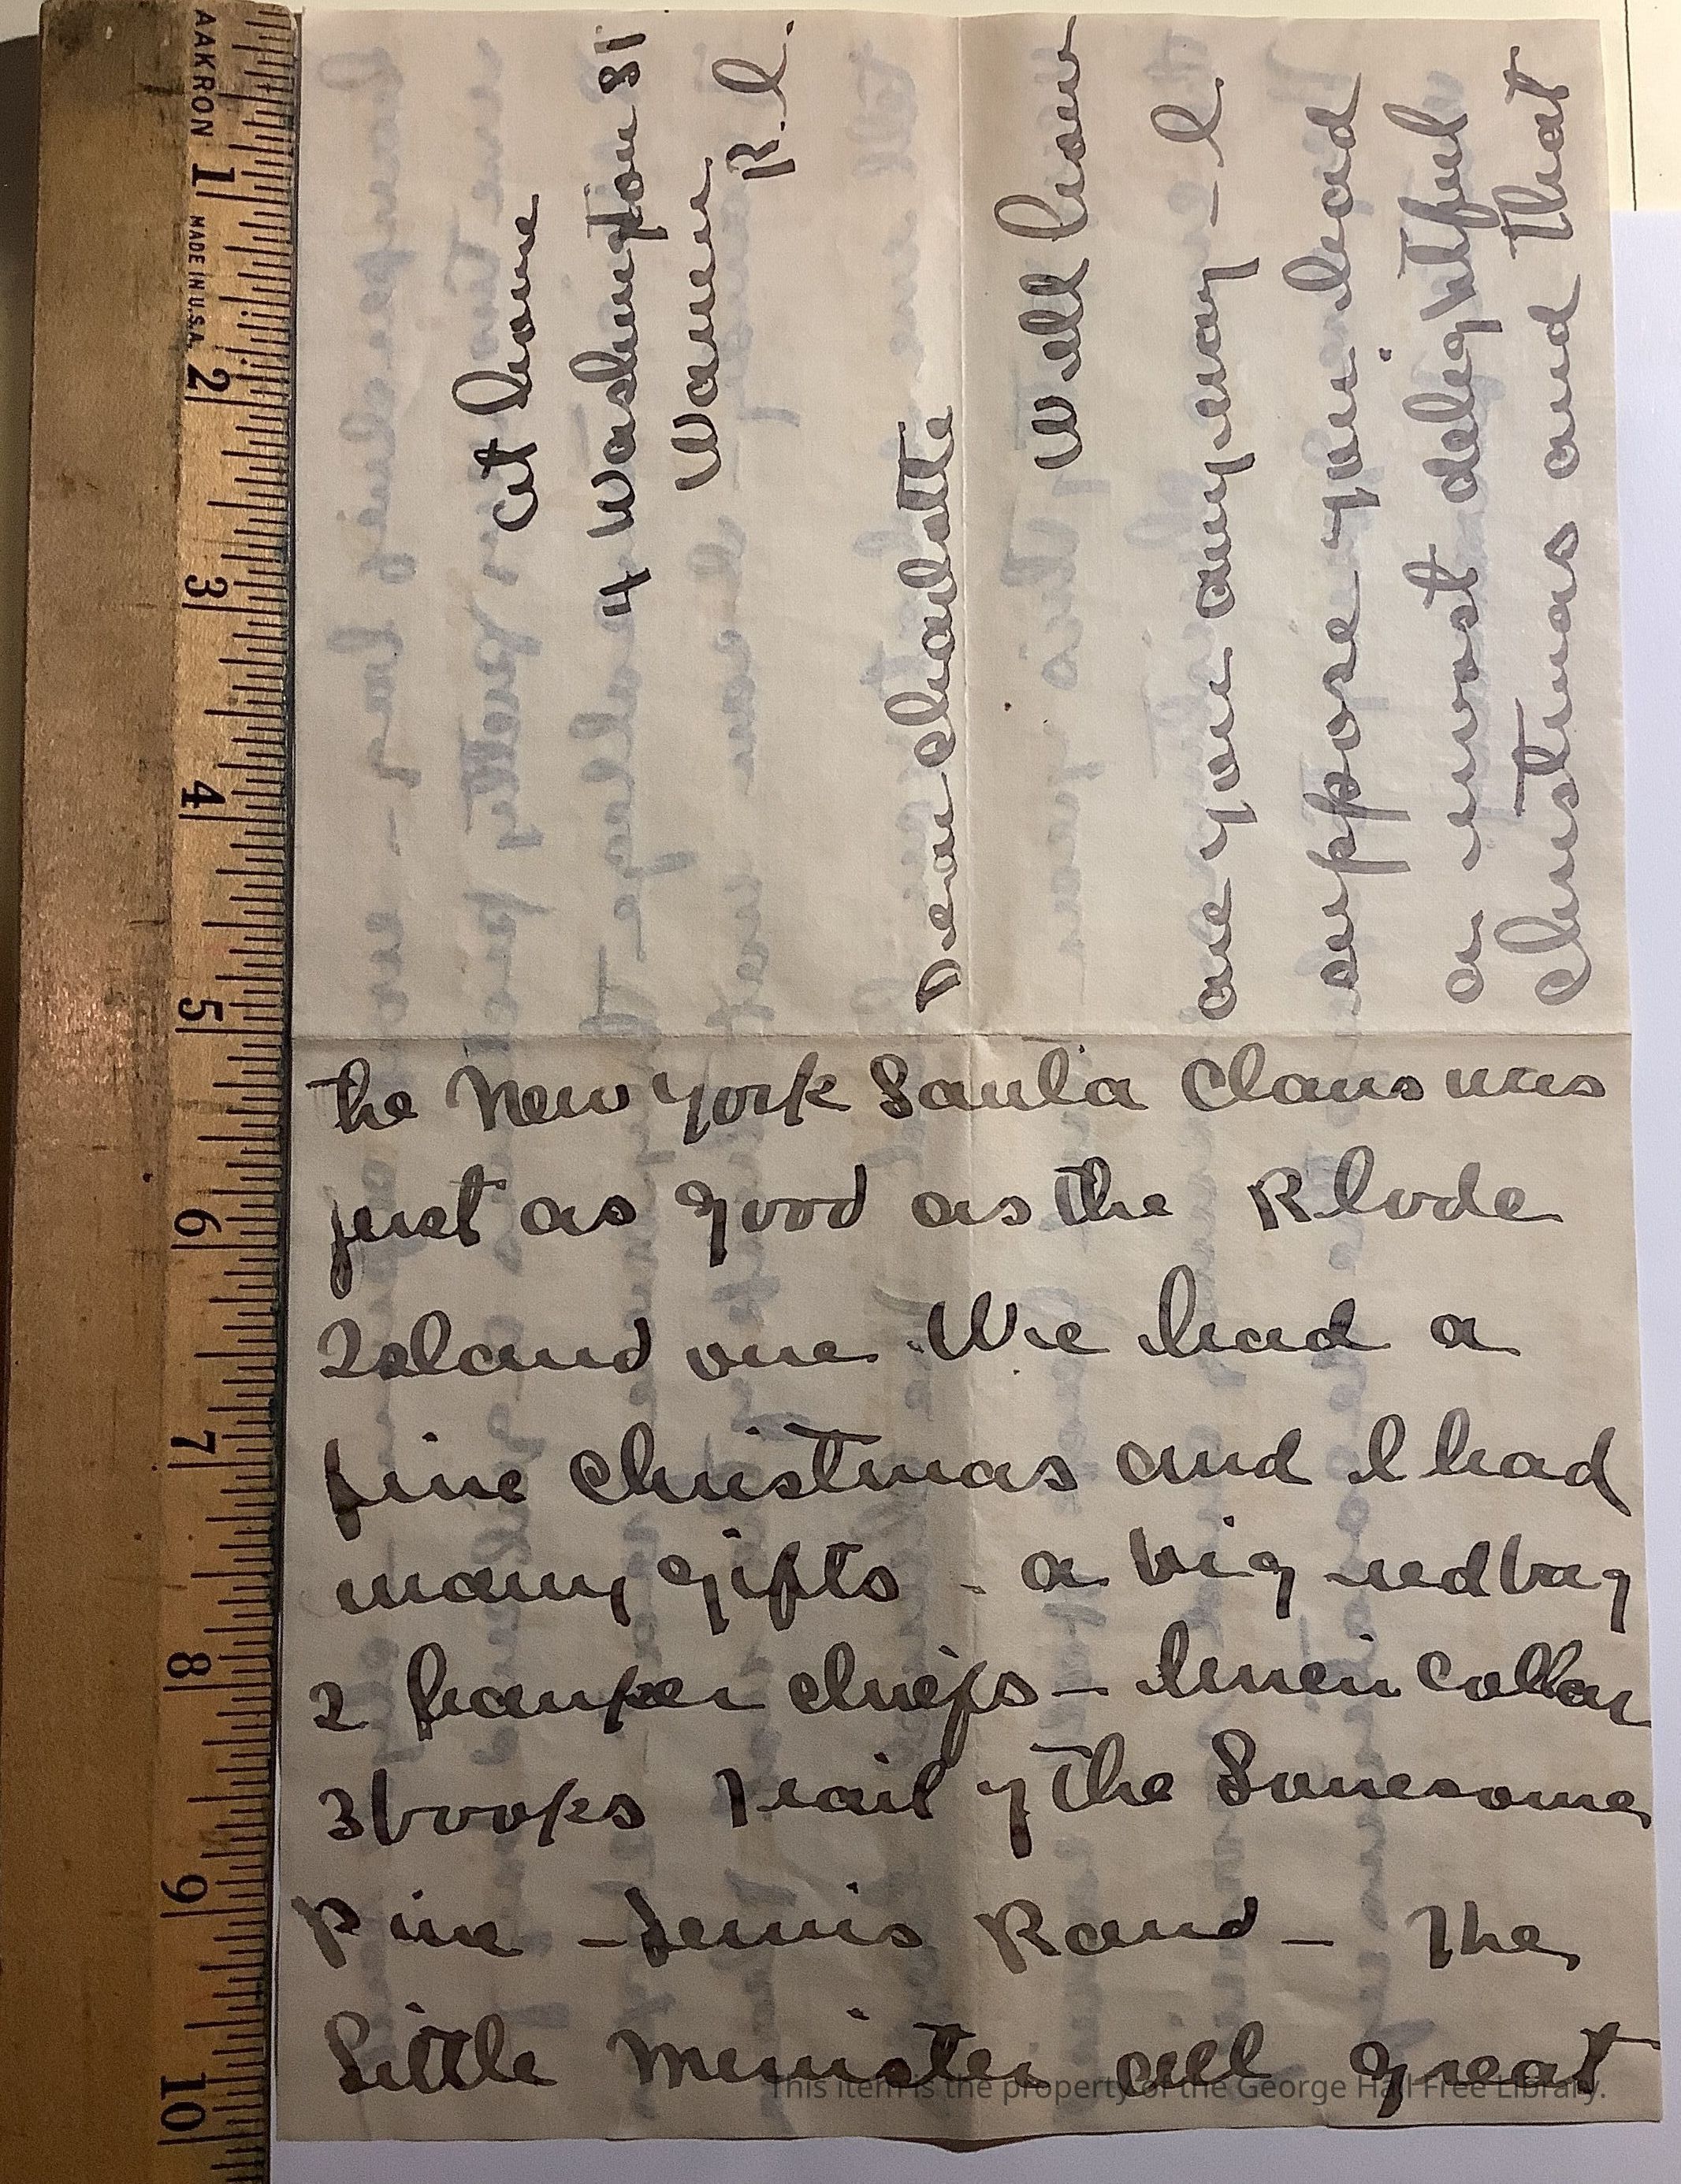 At home
4 Washington St
Warren
R.I.
Dear Charlotte
Well how
are you anyway - I
suppose you had
a most delightful
Christmas and that
the New York Santa Claus was
just as good as the Rhode
Island one. We had a
fine Christmas and I had
many gifts - a big red bag
2 hanker chiefs - linen collar
3 books Trail of the Lonesome
Pine - Lewis Rand - The
Little Minister all great
This item is the property of the George Hail Free Library.
AAKRON
MADE IN U.S.A.
1 2 3 4 5 6 7 8 9 10